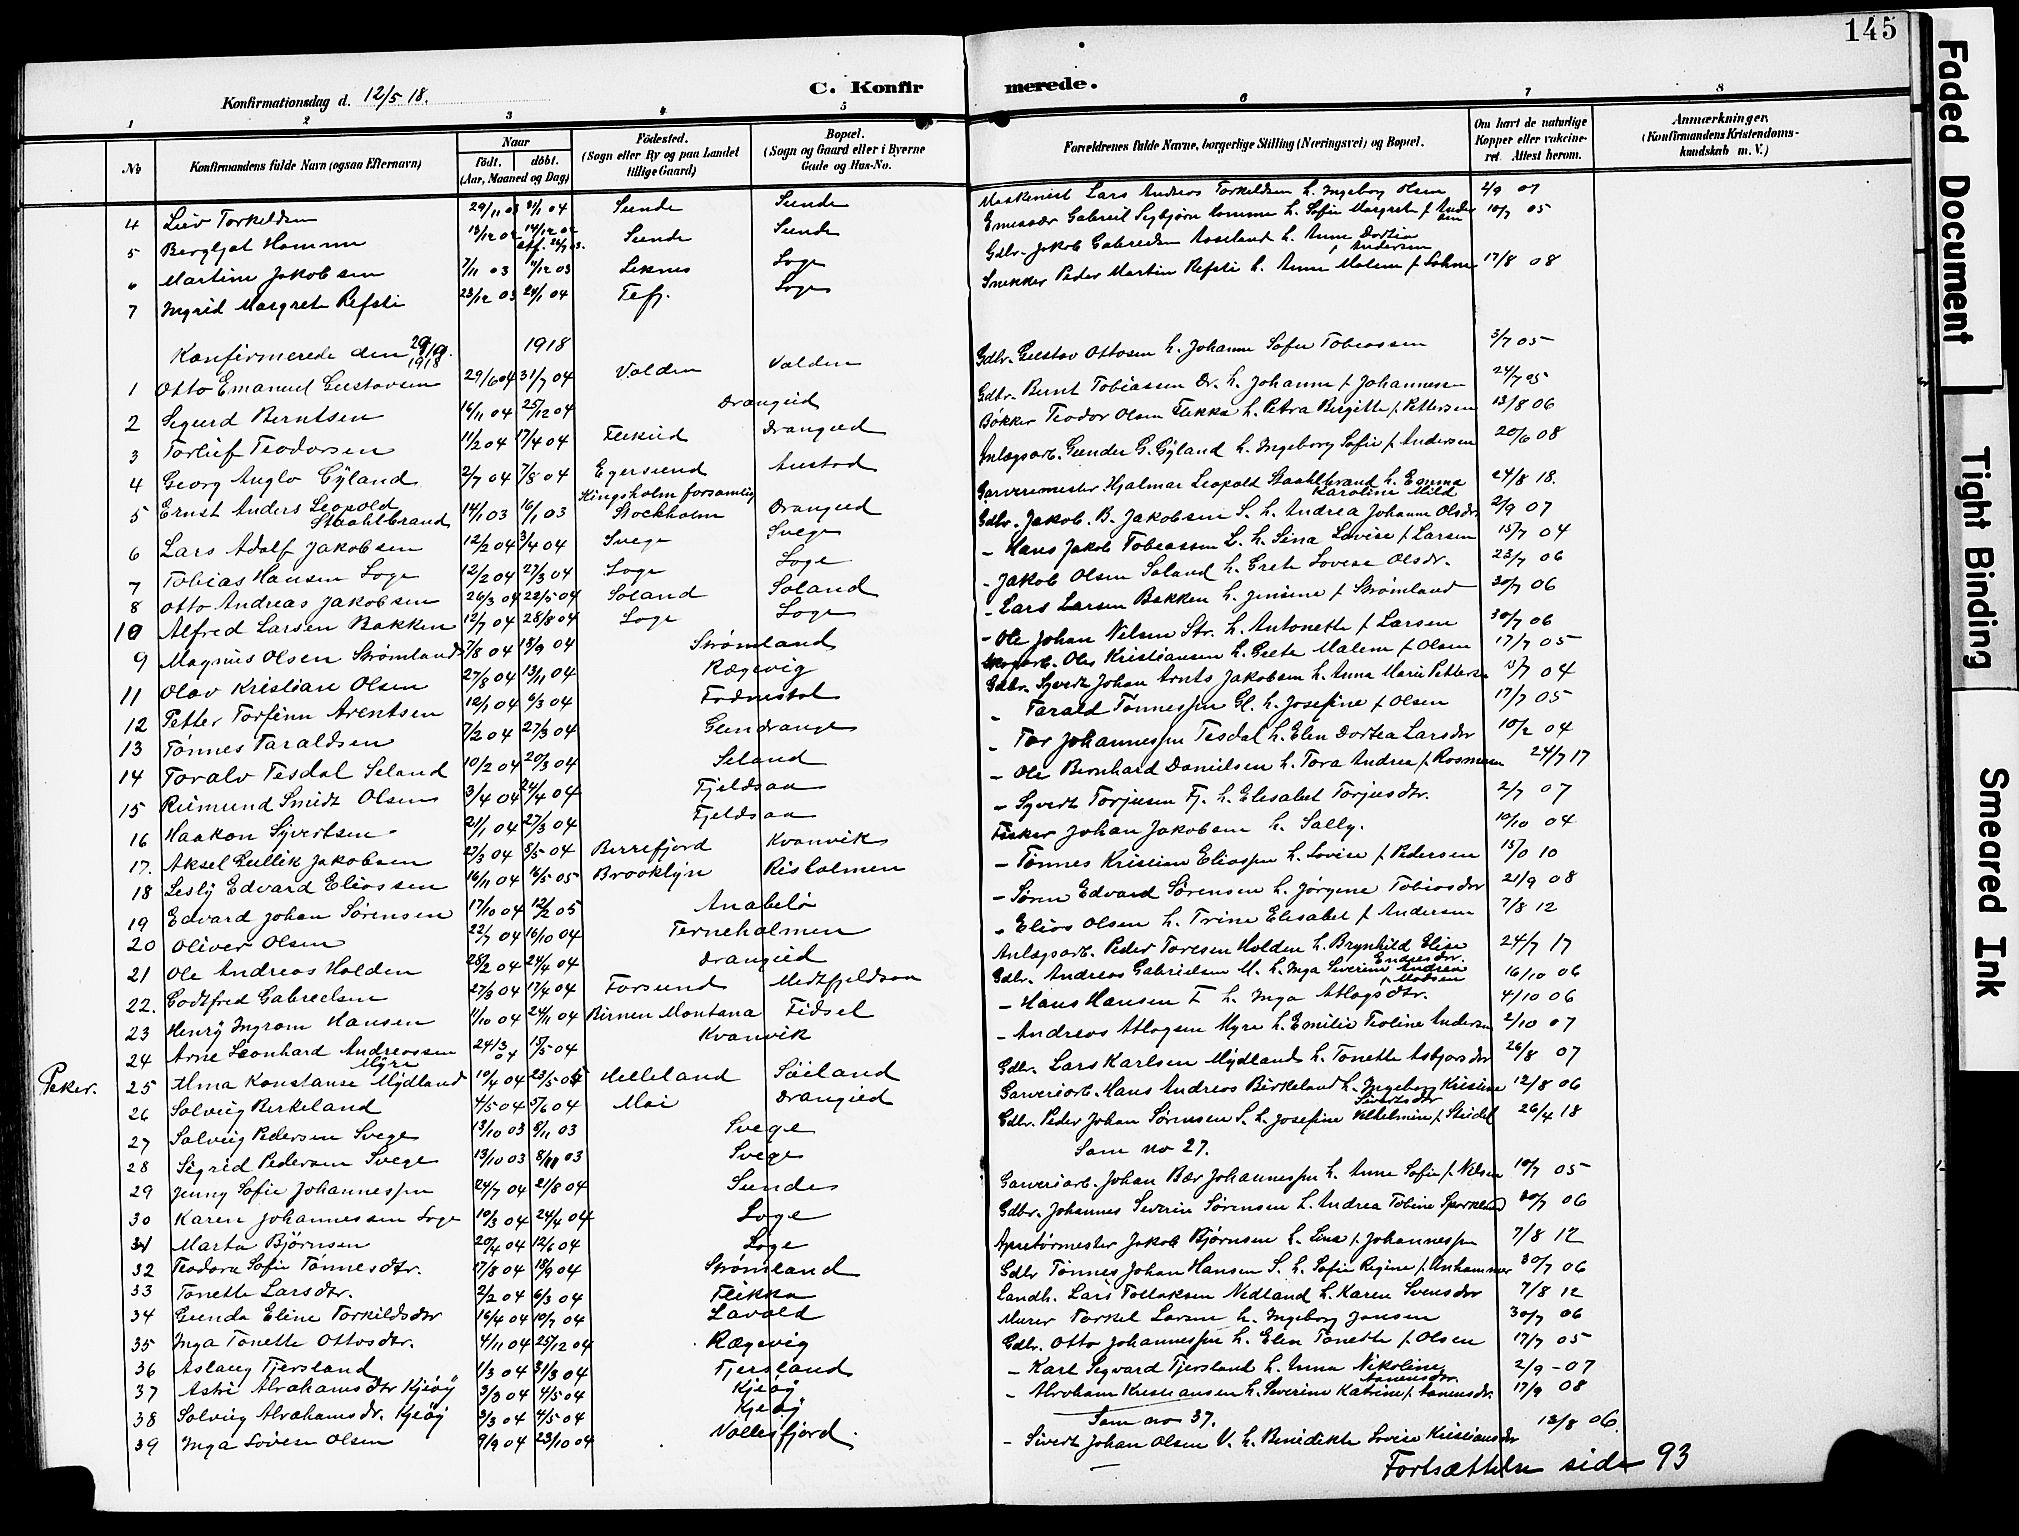 145
Faded Document
Tight Binding
Smeared Ink
Konfirmationsdag d. 12/5 18.
C. Konfirmerede.
1 2 3 4 5 6 7 8
No
Konfirmandens fulde Navn (ogsaa Efternavn)
Naar
født. døbt.
(Aar, Maaned og Dag)
Fødested.
(Sogn eller By og paa Landet tillige Gaard)
Bopæl.
(Sogn og Gaard eller i Byerne Gade og Hus-No.
Forældrenes fulde Navne, borgerlige Stilling (Næringsvei) og Bopæl.
Om havt de naturlige Kopper eller vakcineret Attest herom.
Anmærkninger,
(Konfirmandens Kristendomskundskab m. V.)
4 Liv Torkeldsen 29/11 03 31/1 04 Sunde Sunde Maskinist Lars Andreas Torkeldsen h. Ingeborg Olsen 2/9 07
5 Bergljot Homme Sunde Sunde Emissær Gabriel Sigbjørn Homme h. Sofie Margrete f. Andersen 10/7 05
6 Martine Jakobsen 7/11 03 11/12 03 Leknes Loge Gdbr. Jakob Gabrielsen Aaseland h. Anne Dortia Andersen
7 Ingrid Margrete Refsti 23/12 03 24/1 04 Loge Snekker Peder Martin Refsti h. Anne Malene f. 17/8 08
Konfirmerede den 29/9. 1918 1918
1 Otto Emanuel Gustavsen 29/6 04 31/7 04 Valden Valden Gdbr. Gustav Ottosen h. Johanne Sofie Tobiassen 3/7 05
2 Sigurd Berntsen 16/11 04 25/12 04 Drangeid Gdbr. Bernt Tobiassen Dr. h. Johanne f. Johannessen 24/7 05
3 Torleif Teodorsen 11/2 04 17/4 04 Flekkid Drangeid Bøkker Teodor Olsen Flekka h. Petra Birgitte f. Pettersen 13/8 06
4 Georg Anglo Gyland 2/7 04 7/8 04 Egersund Austad Anlægsarb. Gunder G. Gyland h. Ingeborg Sofie f. Andersen 20/6 08
5 Ernst Anders Leopold Staahlbrand 14/1 03 16/1 03 Kingsholm forsamlig Stockholm Drangeid Garverimester Hjalmar Leopold Staahlbrand h. Emma Karoline Mild 24/8 18.
6 Lars Adolf Jakobsen 12/2 04 3/4 04 Svege Svege Gdbr. Jakob B. Jakobsen S. h. Andrea Johanne Olsdtr 2/9 07
7 Tobias Hansen Loge 12/2 04 27/3 04 Loge Loge - Hans Jakob Tobiassen L. h. Sina Lovise f. Larsen 15/7 04
8 Otto Andreas Jakobsen 26/3 04 22/5 04 Soland Soland - Jakob Olsen Soland h. Grete Lovise Olsdr. 23/7 06
10 Alfred Larsen Bakken 12/7 04 28/8 04 Loge Loge - Lars Larsen Bakken h. Jensine f. Strømland 30/7 06
9 Magnus Olsen Strømland 7/8 04 18/9 04 Strømland - Ole Johan Nilsen Str. h. Antonette f. Larsen 30/7 06
11 Olav Kristian Olsen 27/8 04 13/11 04 Rægevig Ole Kristiansen h. Grete Malene f. Olsen 17/7 05
12 Petter Torfinn Arentsen 12/1 04 6/3 04 Gdbr. Syvert Johan Arnts Jakobsen h. Anna Marie Pettersen 15/7 04
13 Tønnes Taraldsen 7/2 04 27/3 04 Gundrange - Tarald Tønnessen Gl. h. Josefine f. Olsen 17/7 05
14 Toralv Tesdal Seland 10/2 04 20/3 04 Seland - Tor Johannessen Tesdal h. Elen Dortea Larsdtr 10/2 04
15 Reimund Smidt Olsen 3/4 04 24/4 04 Fjeldsaa - Ole Bernhard Danielsen h. Tora Andrea f. Rosmann 24/7 17
16 Haakon Syvertsen 21/1 04 27/3 04 Fjeldsaa - Syvert Torjusen Fj. h. Elisabet Torjusdtr. 2/7 07
17. Aksel Gullik Jakobsen 27/3 04 8/5 04 Berrefjord Kvanvik Fisker Johan Jakobsen h. Sally. 10/10 04
18 Lesly Edvard Eliassen 16/11 04 16/5 05 Brooklyn Risholmen - Tønnes Kristian Eliassen h. Lovise f. Pedersen 10
19 Edvard Johan Sørensen 17/10 04 12/2 05 Anabelø - Søren Edvard Sørensen h. Jørgine Tobiasdtr 21/9 08
20 Oliver Olsen 22/7 04 16/10 04 Terneholmen - Elias Olsen h. Trine Elisabet f. Andersen 7/8 12
21 Ole Andreas Holden 28/2 04 24/4 04 Drangeid Anlægsarb. Peder Toresen Holden h. Brynhild Elise Endresdtr. 24/7 17
22. Godtfred Gabrielsen 27/3 04 17/4 04 Forsund Medtfjeldsaa Gdbr. Andreas Gabrielsen M. h. Inga Severine Andrea f. Madsen 16/10 06
23 Henry Ingram Hansen 11/10 04 24/11 04 Birnen Montana Fidsel - Hans Hansen F. h. Inga Atlagsdtr. 4/10 06
24 Arne Leonhard Andreassen Myre 24/3 04 15/5 04 Kvanvik - Andreas Atlagsen Myre h. Emilie Teoline Andersen 2/10 07
Peker. 25 Alma Konstanse Mydland 10/4 04 23/5 04 Helleland Søiland Gdbr. Lars Karlsen Mydland h. Tonette Asbjørsdtr 26/8 07
26 Solveig Birkeland 4/5 04 5/6 04 Moi Drangeid Garveriarb. Hans Andreas Birkeland h. Ingeborg Kristine Sivertsdtr 12/8 06
27 Solveig Pedersen Svege 13/10 03 8/11 03 Svege Gdbr. Peder Johan Sørensen S. h. Josefine Vilhelmine f. Stridel 26/4 18
28 Sigrid Pedersen Svege 13/10 03 8/11 03 Svege Som no 27.
29 Jenny Sofie Johannessen 24/7 04 21/8 04 Sunde Garveriarb. Johan Bær Johannessen h. Anne Sofie f. Nilsen 10/7 05
30 Karen Johannessen Loge 10/3 04 24/4 04 Loge Gdbr. Johannes Severin Sørensen L. Andrea Tobine Sparkland 30/7 06
31 Marta Bjørnsen 20/4 04 12/6 04 Loge Apretørmester Jakob Bjørnsen h. Lina f. Johannessen 7/8 12
32 Teodora Sofie Tønnesdtr. 17/8 04 18/9 04 Strømland Gdbr Tønnes Johan Hansen S. h. Sofie Regine f. Anhammer 30/7 06
33 Tonette Larsdtr. 2/2 04 6/3 04 Flikka Landh. Lars Tollaksen Nedland h. Karen Svensdtr 7/8 12
34 Gunda Eline Torkildsdtr 16/4 04 10/7 04 Lavold Murer Torkel Larsen h. Ingeborg Jonsen 30/7 06
35 Inga Tonette Ottosdtr. 4/11 04 25/12 04 Rægevig Gdbr. Otto Johannessen h. Elen Tonette f. Olsen 17/7 05
36 Aslaug Tjersland 1/3 04 31/3 04 Tjersland - Karl Sigvard Tjersland h. Anna Nikoline Aanensdtr. 2/9 - 07
37 Astri Abrahamsdtr Kjeøy 3/3 04 4/5 04 Kjeøy - Abraham Kristiansen h. Severine Katrine f. Aanensdr. 17/9 08
38 Solveig Abrahamsdr. Kjeøy 3/3 04 4/5 04 Kjeøy Som no 37.
39 Inga Lovise Olsen 9/9 04 23/10 04 Vollesfjord. - Sivert Johan Olsen V. h. Benedikte Lovise Kristiansdtr 13/8 06.
Fortsættelse side 93